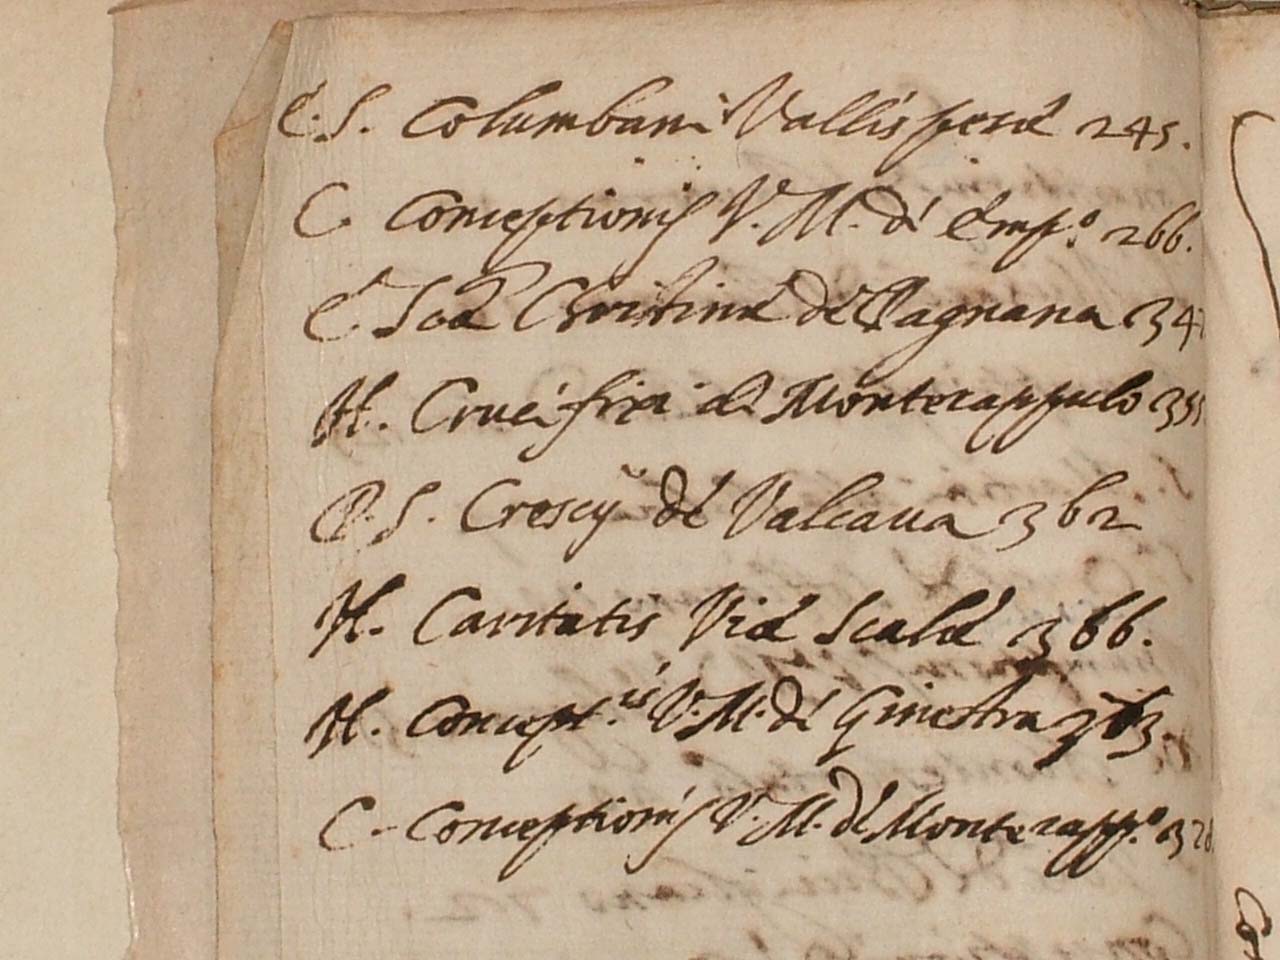 E. S. Columbani Vallis pesæ 245.
C. Conceptionis V. M. de Emp.o 266.
E. Scæ Christinæ de Pagnana 34
H. Crucifixi de Montecappulo 355
P. S. Crescij de Valcava 362
H. Caritatis Viæ Scalæ 366.
H. Concept.is V. M. de Ginestra
C. Conceptionis V. M. de Montecapp.o 32